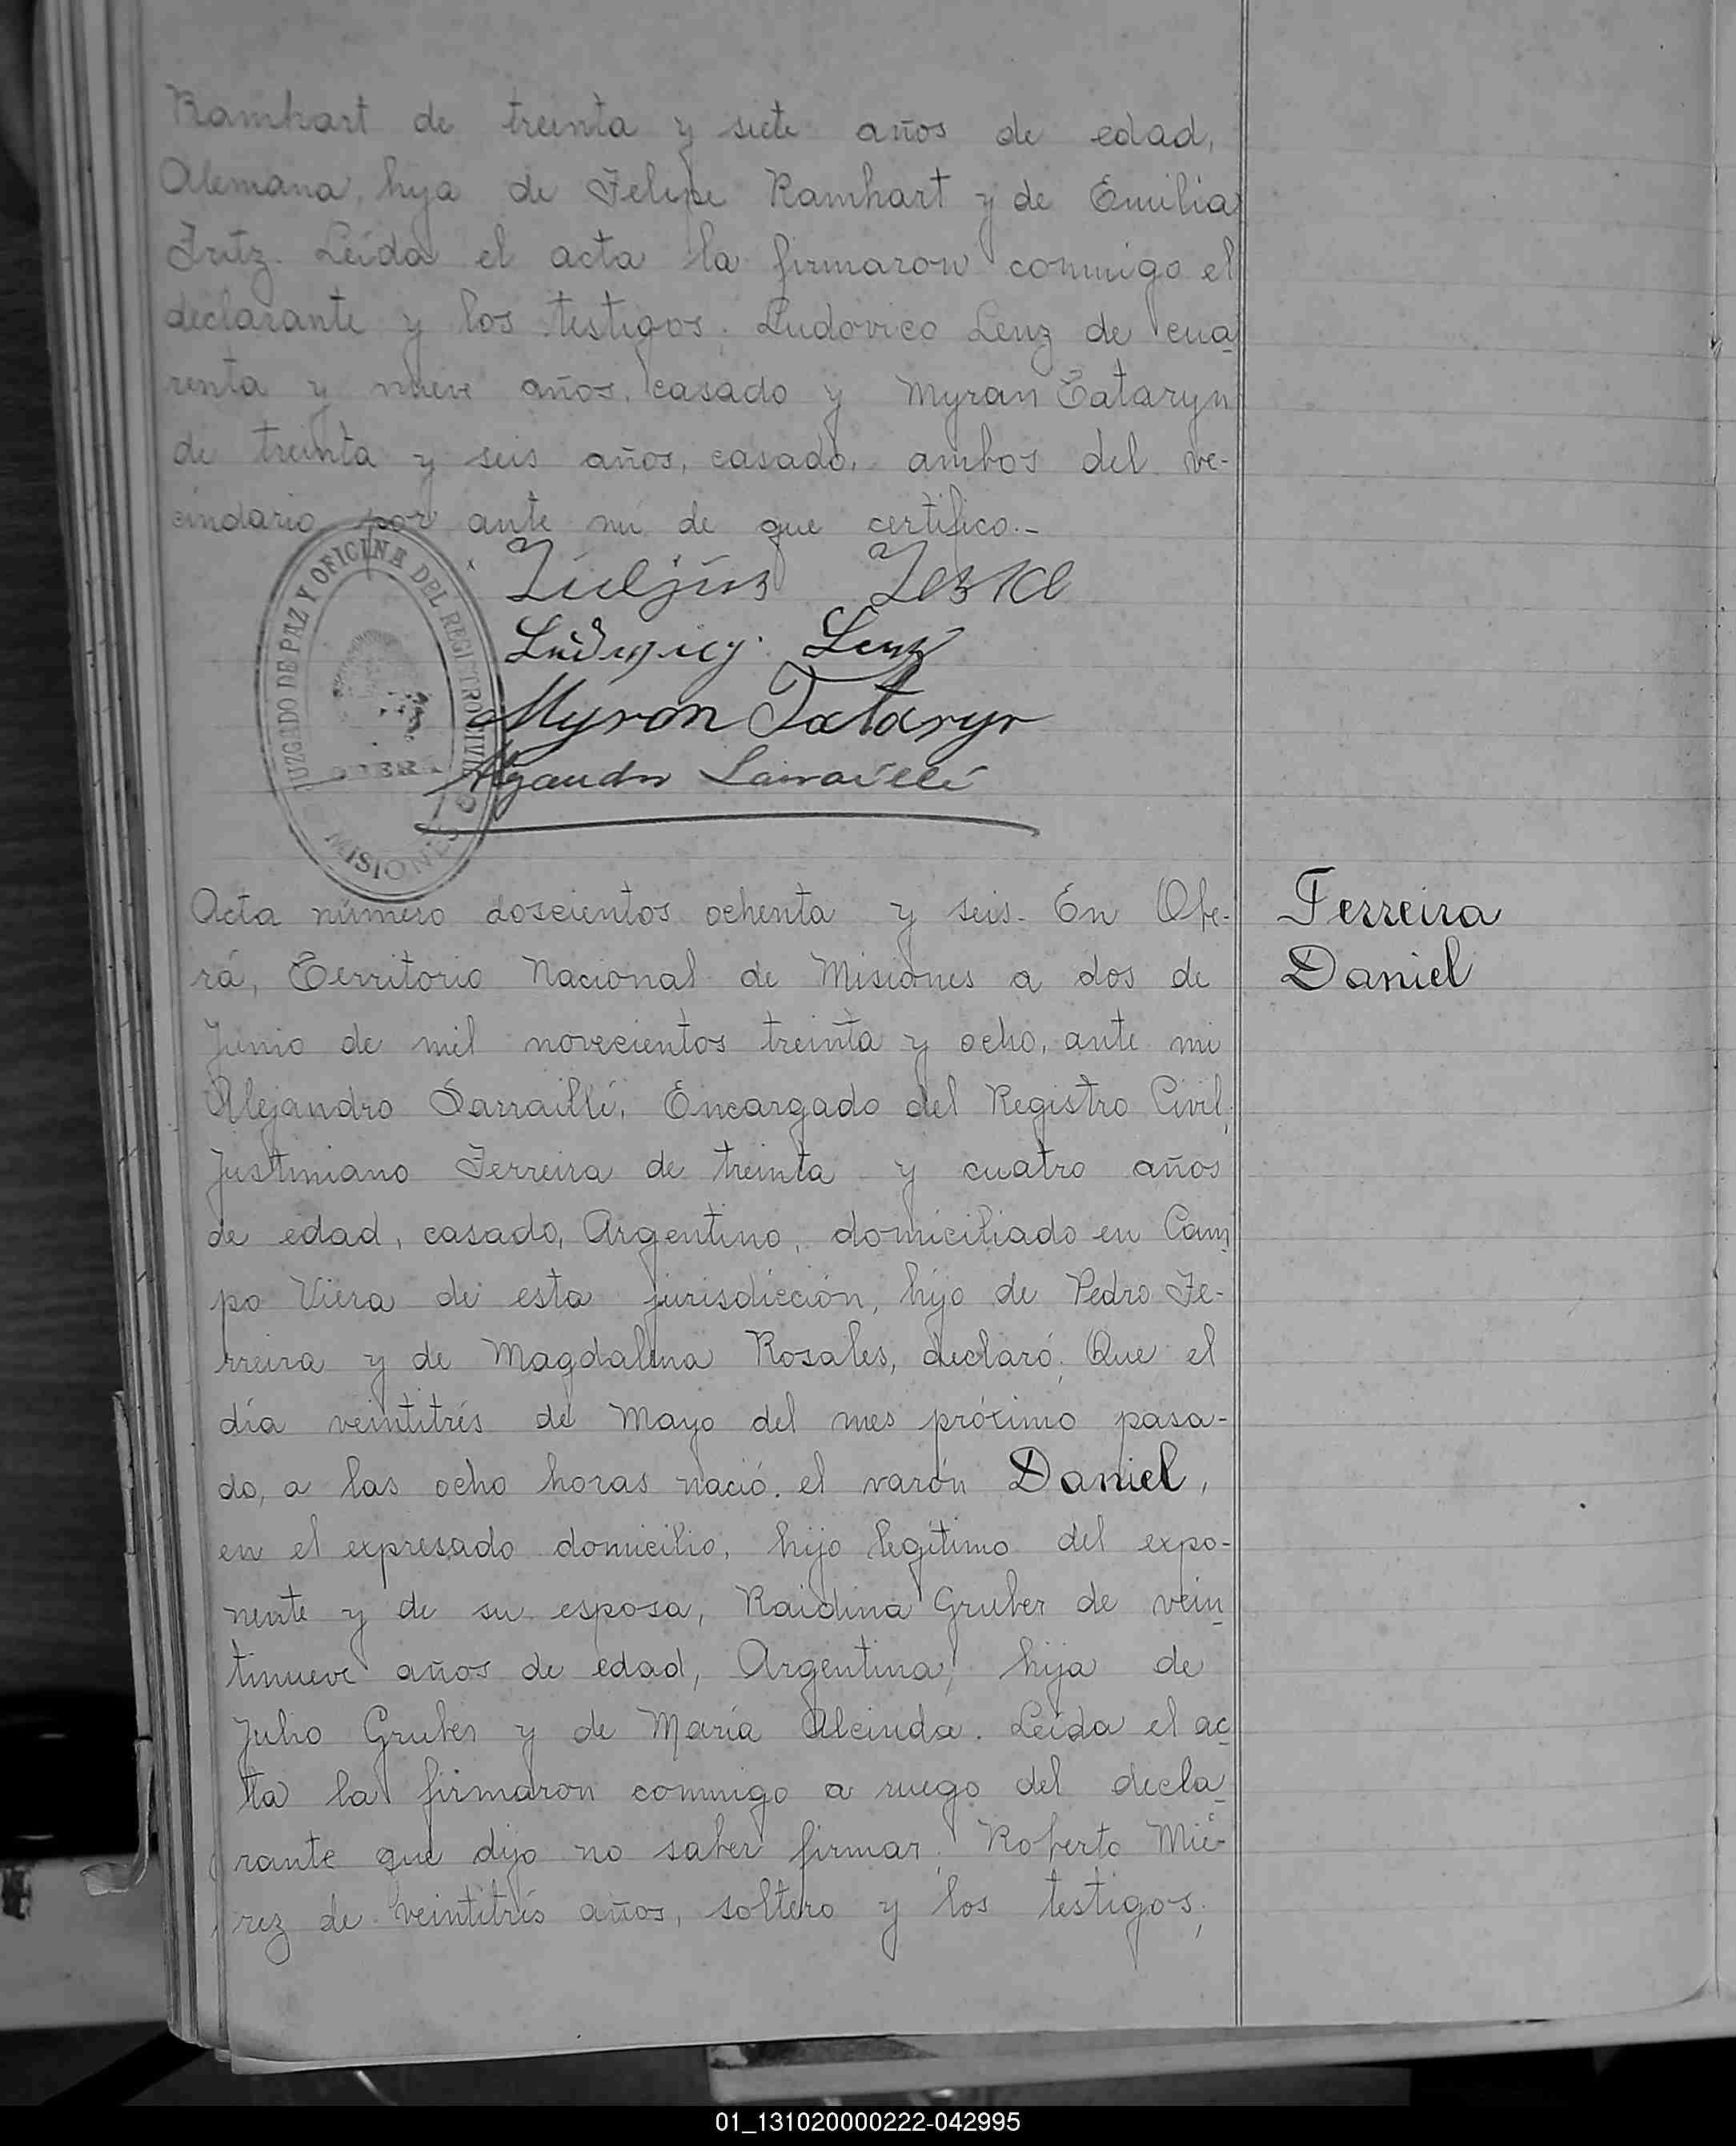 Ramhart de treinta y siete años de edad,
Alemana, hija de Felipe Ramhart y de Emilia
Fritz. Leída el acta la firmaron conmigo el
declarante y los testigos: Ludovico Lenz de cua
renta y nueve años, casado y Myran Tataryn
de treinta y seis años, casado, ambos del ve-
cindario, por ante mí de que certifico.-
JUZGADO DE PAZ Y OFICINA DEL REGISTRO CIVIL
OBERA
MISIONES
Lenz
Myron Tataryn
Acta número doscientos ochenta y seis. En Obe-
rá, Territorio Nacional de Misiones a dos de
Junio de mil novecientos treinta y ocho, ante mi
Alejandro Larraillé, Encargado del Registro Civil,
Justiniano Ferreira de treinta y cuatro años
de edad, casado, Argentino, domiciliado en Cam
po Viera de esta jurisdicción, hijo de Pedro Fe-
rreira y de Magdalena Rosales, declaró: Que el
día veintitrés de Mayo del mes próximo pasa-
do, a las ocho horas nació el varón Daniel,
en el expresado domicilio, hijo legítimo del expo-
nente y de su esposa, Raidina Gruber de vein
tinueve años de edad, Argentina, hija de
Julio Gruber y de María Alcinda. Leída el ac
ta la firmaron conmigo a ruego del decla
rante que dijo no saber firmar, Roberto
de veintitrés años, soltero y los testigos,
Ferreira
Daniel
01_131020000222-042995